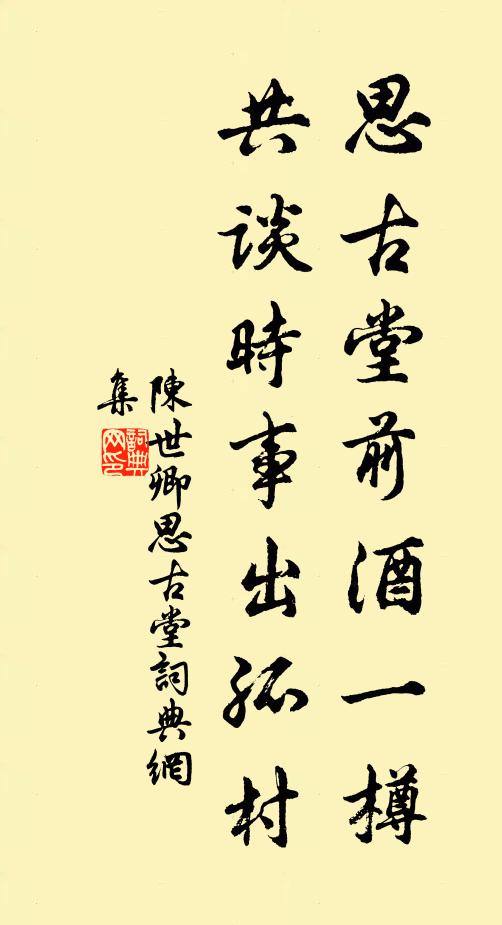 思古堂前酒一樽
共談時事出孤村
陳世卿思古堂詞典網
集
詞典網印